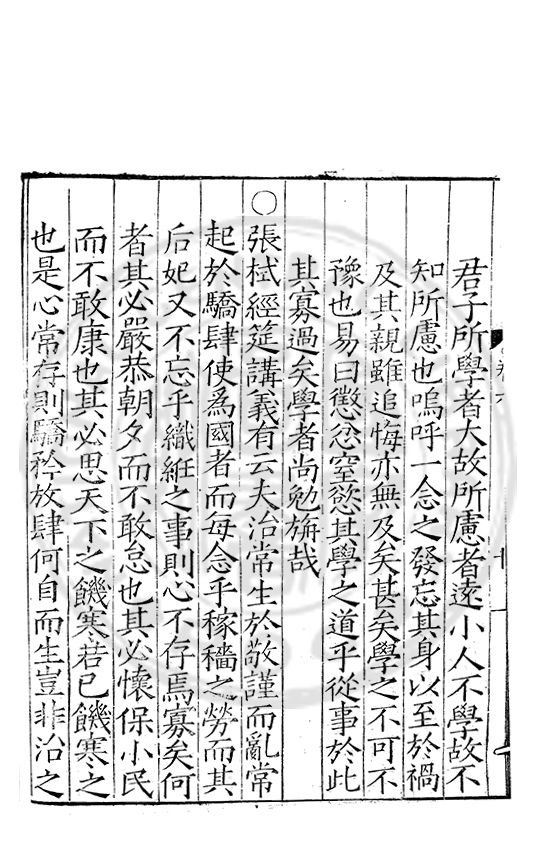 君子所學者大故所慮者遠小人不學故不
知所慮也嗚呼一念之發忘其身以至於禍
及其親雖追悔亦無及矣甚矣學之不可不
豫也易曰懲忿窒慾其學之道乎從事於此
其寡過矣學者尚勉旃哉
○張栻經筵講義有云夫治常生於敬謹而亂常
起於驕肆使爲國者而每念乎稼穡之勞而其
后妃又不忘乎織絍之事則心不存焉寡矣何
者其必嚴恭朝夕而不敢怠也其必懷保小民
而不敢康也其必思天下之饑寒若已饑寒之
也是心常存則驕矜放肆何自而生豈非治之